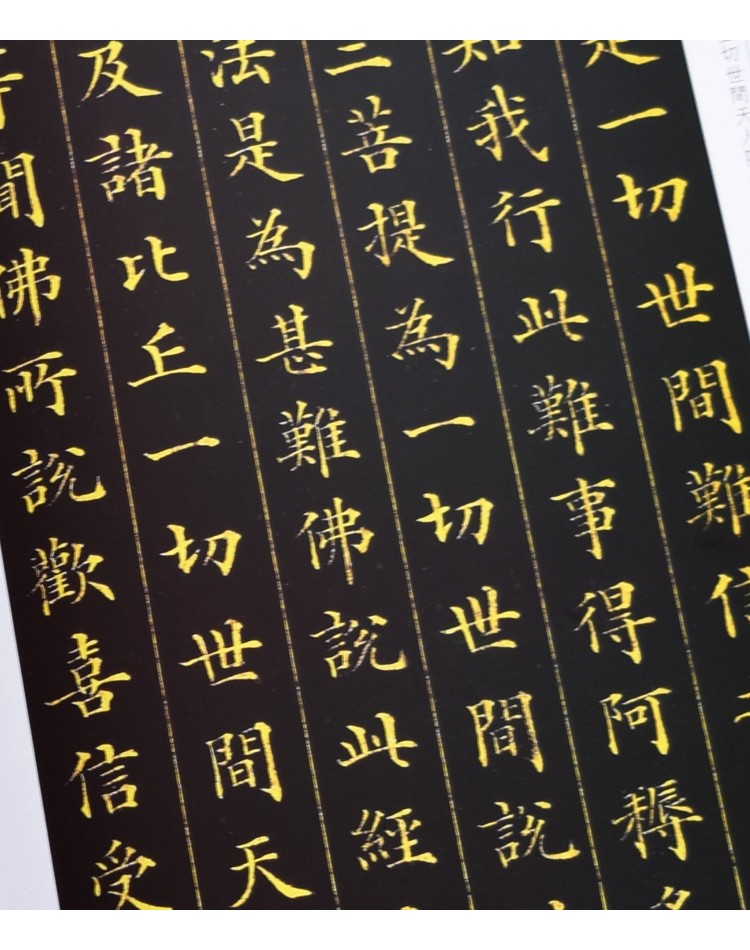 切世間天人
是一切世間難信
知我行此難事得阿耨多
三菩提為一切世間說
法是為甚難佛說此經
及諸比丘一切世間天
等聞佛所說歡喜信受